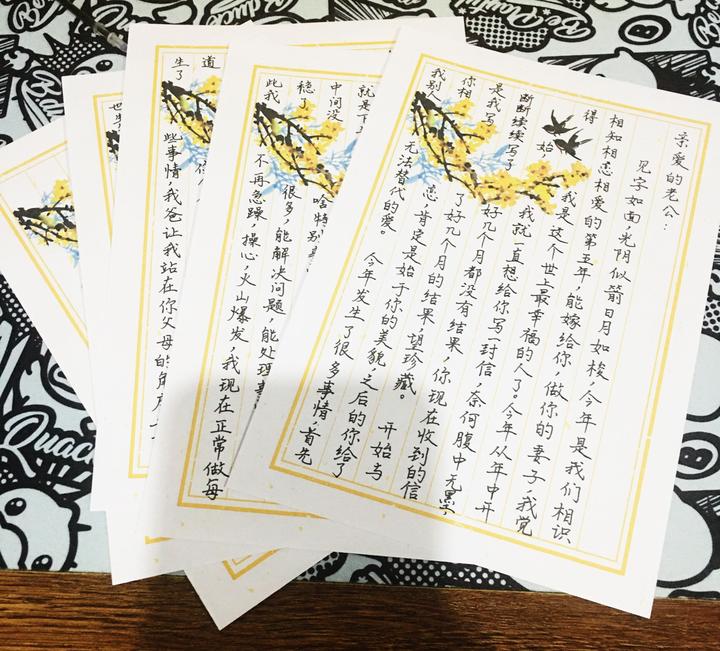 亲爱的老公：
见字如面,光阴似箭日月如梭,今年是我们相识
相知相恋相爱的第五年,能嫁给你,做你的妻子,我觉
得我是这个世上最幸福的人了。今年从年中开
始,我就一直想给你写一封信,奈何腹中无墨,
断断续续写了好几个月都没有结果,你现在收到的信
是我写了好几个月的结果,望珍藏。 开始与
你相恋,肯定是始于你的美貌,之后的你给了
我别人无法替代的爱。 今年发生了很多事情,首先
就是下
中间没啥特别事
稳了很多,能解决问题,能处理事
此我不再急躁,操心,火山爆发,我现在正常做每
道你
生了些事情,我爸让我站在你父母的角度
也
Quack
Be Playful
B.Duck